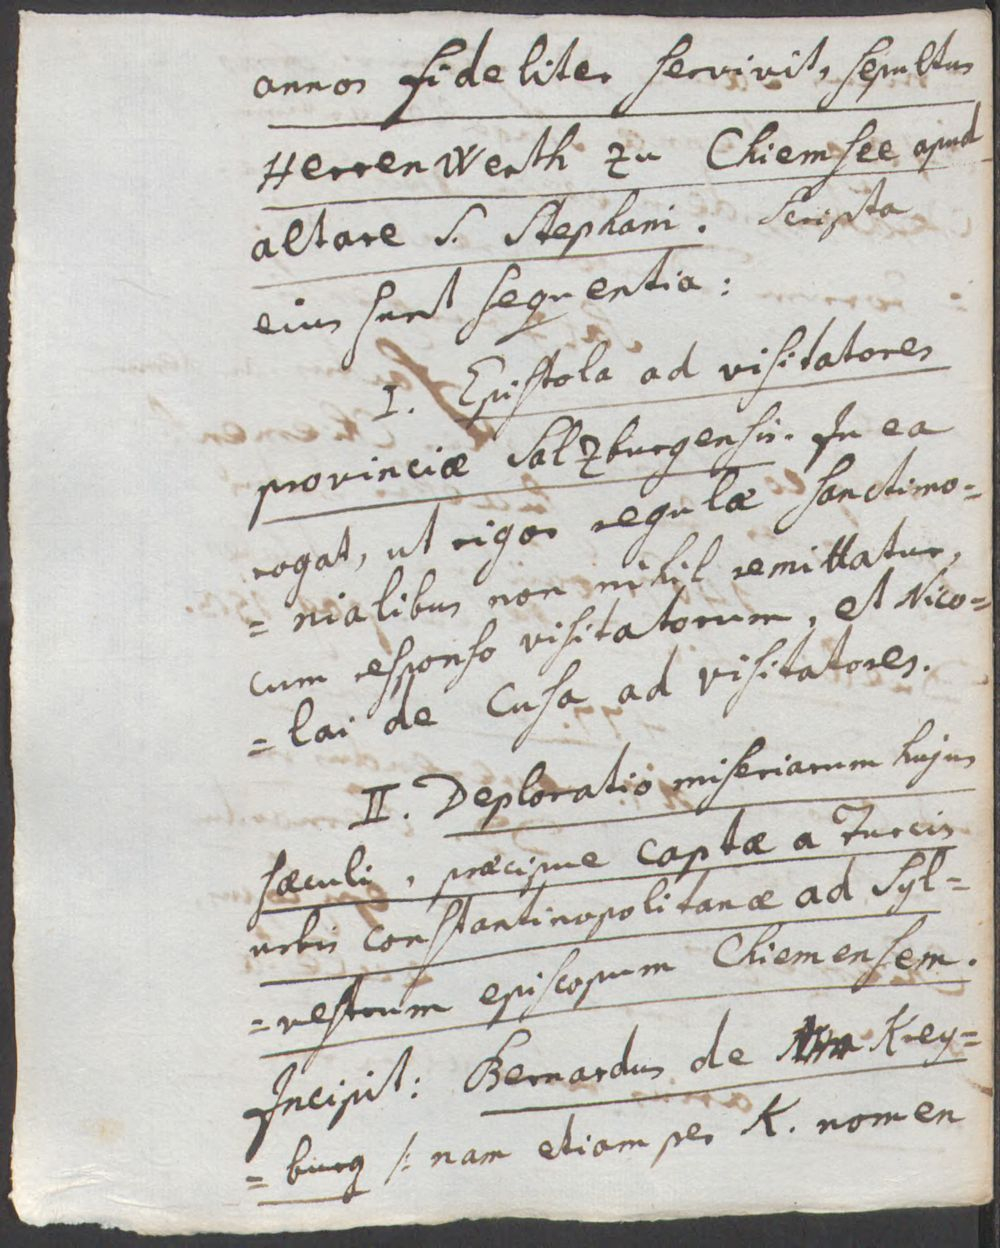 annos fideliter servivit, sepultus
Herrenwerth zu Chiemsee apud
altare S. Stephani. Scripta
eius sunt sequentia:
I. Epistola ad visitatores
provinciæ Salzburgensis. In ea
rogat, ut rigor regulæ sanctimo=
=nialibus non nihil remittatur,
cum responso visitatorum, et Nico=
=lai de Cusa ad visitatores.
II. Deploratio miseriarum hujus
sæculi, præcipue captæ a Turcis
urbis constantinopolitanæ ad Syl=
=vestrum episcopum Chiemensem.
Incipit: Bernardus de Krey=
=burg /: nam etiam per K. nomen